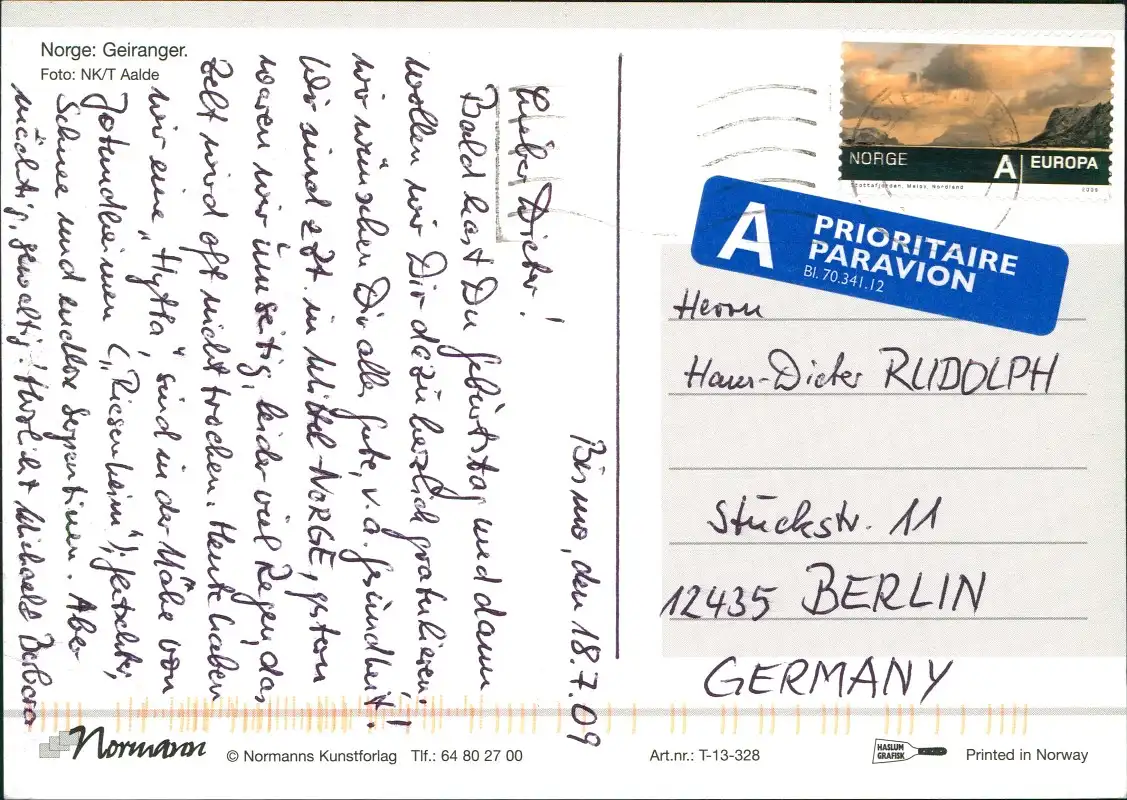 Norge: Geiranger.
Foto: NK/T Aalde
Bismo, den 18.7.09
Lieber Dieter!
Bald hast Du Geburtstag und dann
wollen wir Dir dazu herzlich gratulieren.
Wir wünschen Dir alles Gute, v.a. Gesundheit!
Wir sind z.Zt. in Mittel-NORGE, gestern
waren wir in leider viel Regen, das
Zelt wird oft nicht trocken. Heute haben
wir eine "Hytta", sind in der Nähe von
Jotundheimen ("Riesenheim"), Gletscher,
Schnee und endlose Serpentinen. Aber
mächtig gewaltig! Herzlichst Michael & Barbara
NORGE A EUROPA
A PRIORITAIRE
PAR AVION
Bl. 70.341.12
Herrn
Hans-Dieter RUDOLPH
Stückstr. 11
12435 BERLIN
GERMANY
Normann
© Normanns Kunstforlag Tlf.: 64 80 27 00
Art.nr.: T-13-328
HASLUM
GRAFISK
Printed in Norway